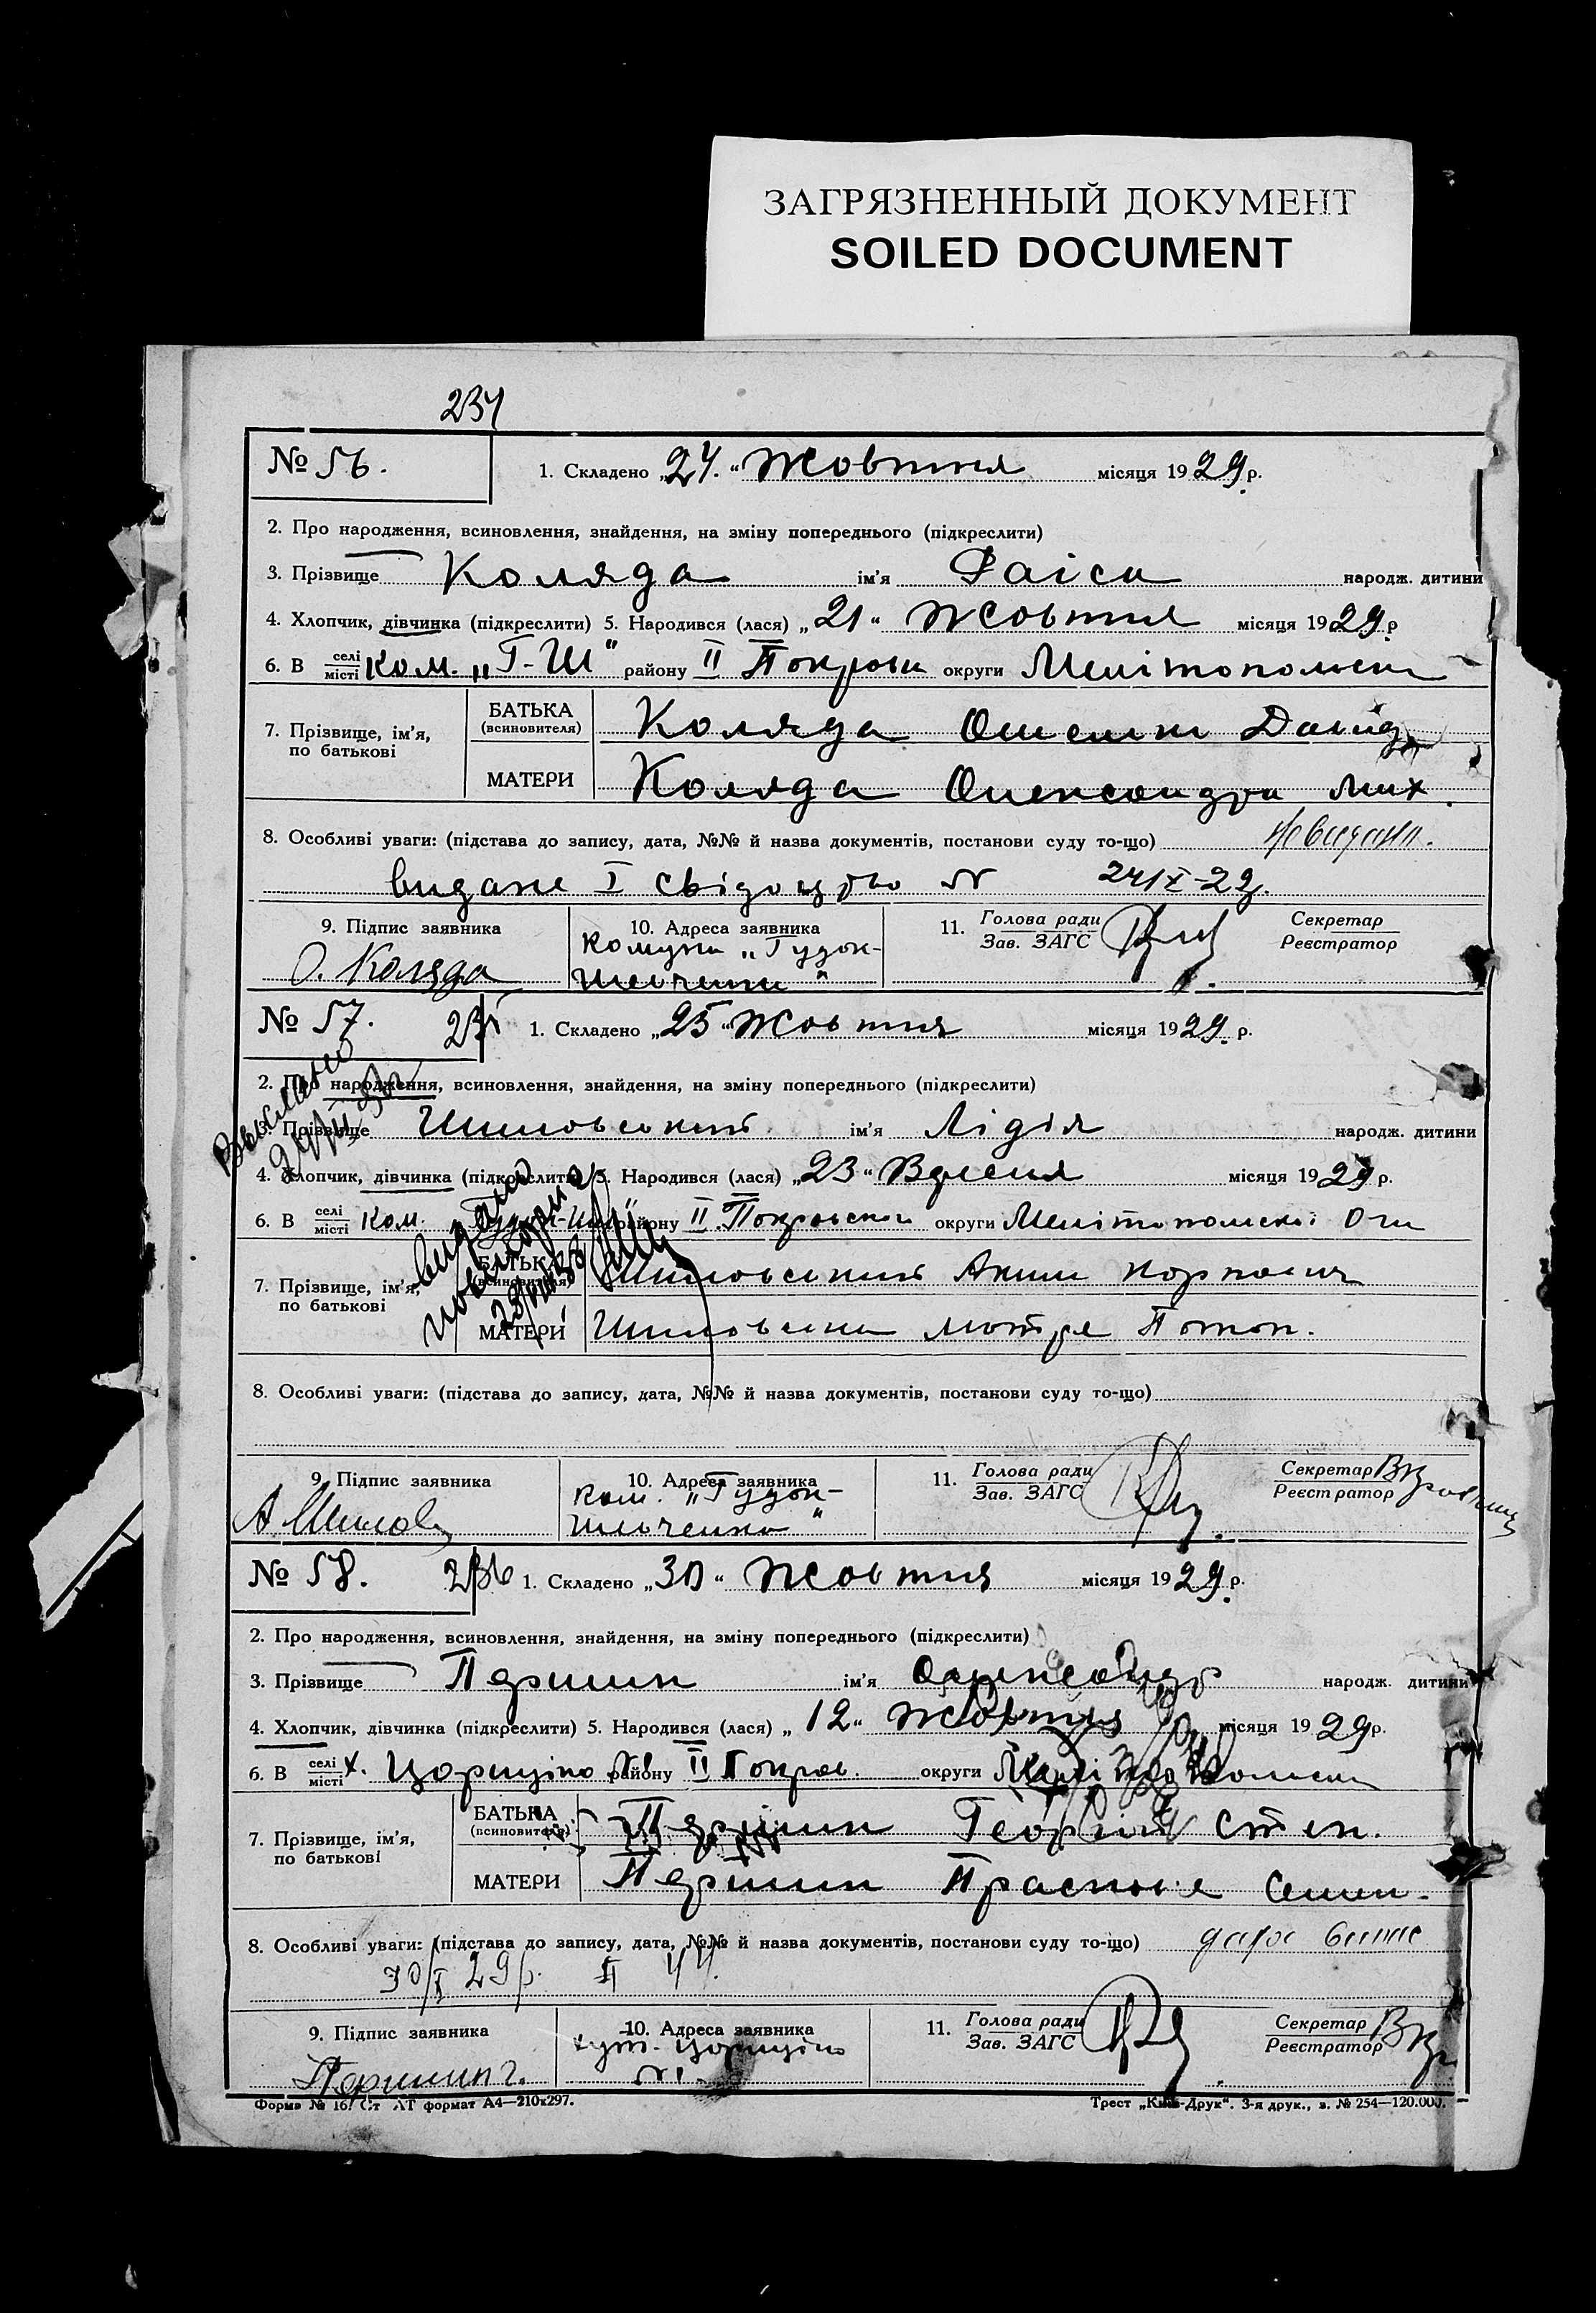 ЗАГРЯЗНЕННЫЙ ДОКУМЕНТ
SOILED DOCUMENT
234
№ 56.
1. Складено „24.“ Жовтня місяця 1929 р.
2. Про народження, всиновлення, знайдення, на зміну попереднього (підкреслити)
3. Прізвище Коляда ім’я Раіса народж. дитини
4. Хлопчик, дівчинка (підкреслити) 5. Народився (лася) „21“ Жовтня місяця 1929 р
6. В селі місті Ком. „Г-Ш“ району ІІ Покровськ округи Мелітопольськ
7. Прізвище, ім’я, по батькові
БАТЬКА (всиновителя) Коляда Давид
МАТЕРИ Коляда Олександра Мих.
8. Особливі уваги: (підстава до запису, дата, №№ й назва документів, постанови суду то-що)
видане І свідоцтво N 24/X-29.
9. Підпис заявника
О. Коляда
10. Адреса заявника
Комуна „Гудок-
Шевченка“
11. Голова ради Зав. ЗАГС
Секретар Реєстратор
№ 57. 235
1. Складено „25“ Жовтня місяця 1929. р.
2. Про народження, всиновлення, знайдення, на зміну попереднього (підкреслити)
3. Прізвище ім’я Лідія народж. дитини
4. Хлопчик, дівчинка (підкреслити) 5. Народився (лася) „23“ Вресня місяця 1929 р.
6. В селі місті Ком. району ІІ. Покровської округи Мелітопольскої
видано
повторно
7. Прізвище, ім’я, по батькові
БАТЬКА (всиновителя) Аким Карпович
МАТЕРИ Мотря
8. Особливі уваги: (підстава до запису, дата, №№ й назва документів, постанови суду то-що)
9. Підпис заявника
10. Адреса заявника
Ком. „Гудок-
Шевченка“
11. Голова ради Зав. ЗАГС
Секретар Реєстратор
№ 58. 236
1. Складено „30“ Жовтня місяця 1929. р.
2. Про народження, всиновлення, знайдення, на зміну попереднього (підкреслити)
3. Прізвище Першин ім’я Олександр народж. дитини
4. Хлопчик, дівчинка (підкреслити) 5. Народився (лася) „12“ Жовтня місяця 1929 р.
6. В селі місті х. Царицино району ІІ Покров. округи Мелітопольськ
7. Прізвище, ім’я, по батькові
БАТЬКА (всиновителя) Першин Георгій Степ.
МАТЕРИ Першин Прасковія Семен.
8. Особливі уваги: (підстава до запису, дата, №№ й назва документів, постанови суду то-що)
30/X 29 р.
9. Підпис заявника
Першин Г.
10. Адреса заявника
хут. Царицино
N 1.
11. Голова ради Зав. ЗАГС
Секретар Реєстратор
Форма № 16. Ст ХТ формат А4—210х297.
Трест „Київ-Друк“. 3-я друк., з. № 254—120.000.